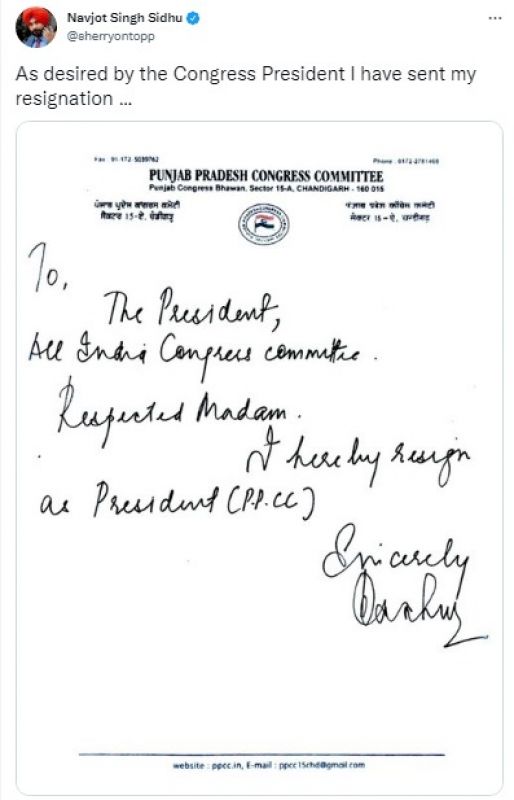 Navjot Singh Sidhu
@sherryontopp
As desired by the Congress President I have sent my
resignation ...
Fax : 91-172-5039762
Phone : 0172-2781468
PUNJAB PRADESH CONGRESS COMMITTEE
Punjab Congress Bhawan, Sector 15-A, CHANDIGARH - 160 015
ਪੰਜਾਬ ਪ੍ਰਦੇਸ਼ ਕਾਂਗਰਸ ਕਮੇਟੀ
ਸੈਕਟਰ 15-ਏ, ਚੰਡੀਗੜ੍ਹ
पंजाब प्रदेश काँग्रेस कमेटी
सेक्टर 15-ऐ, चण्डीगढ़
To,
The President,
All India Congress committee.
Respected Madam.
I hereby resign
as President (P.P.CC)
Sincerely
website : ppcc.in, E-mail : ppcc15chd@gmail.com